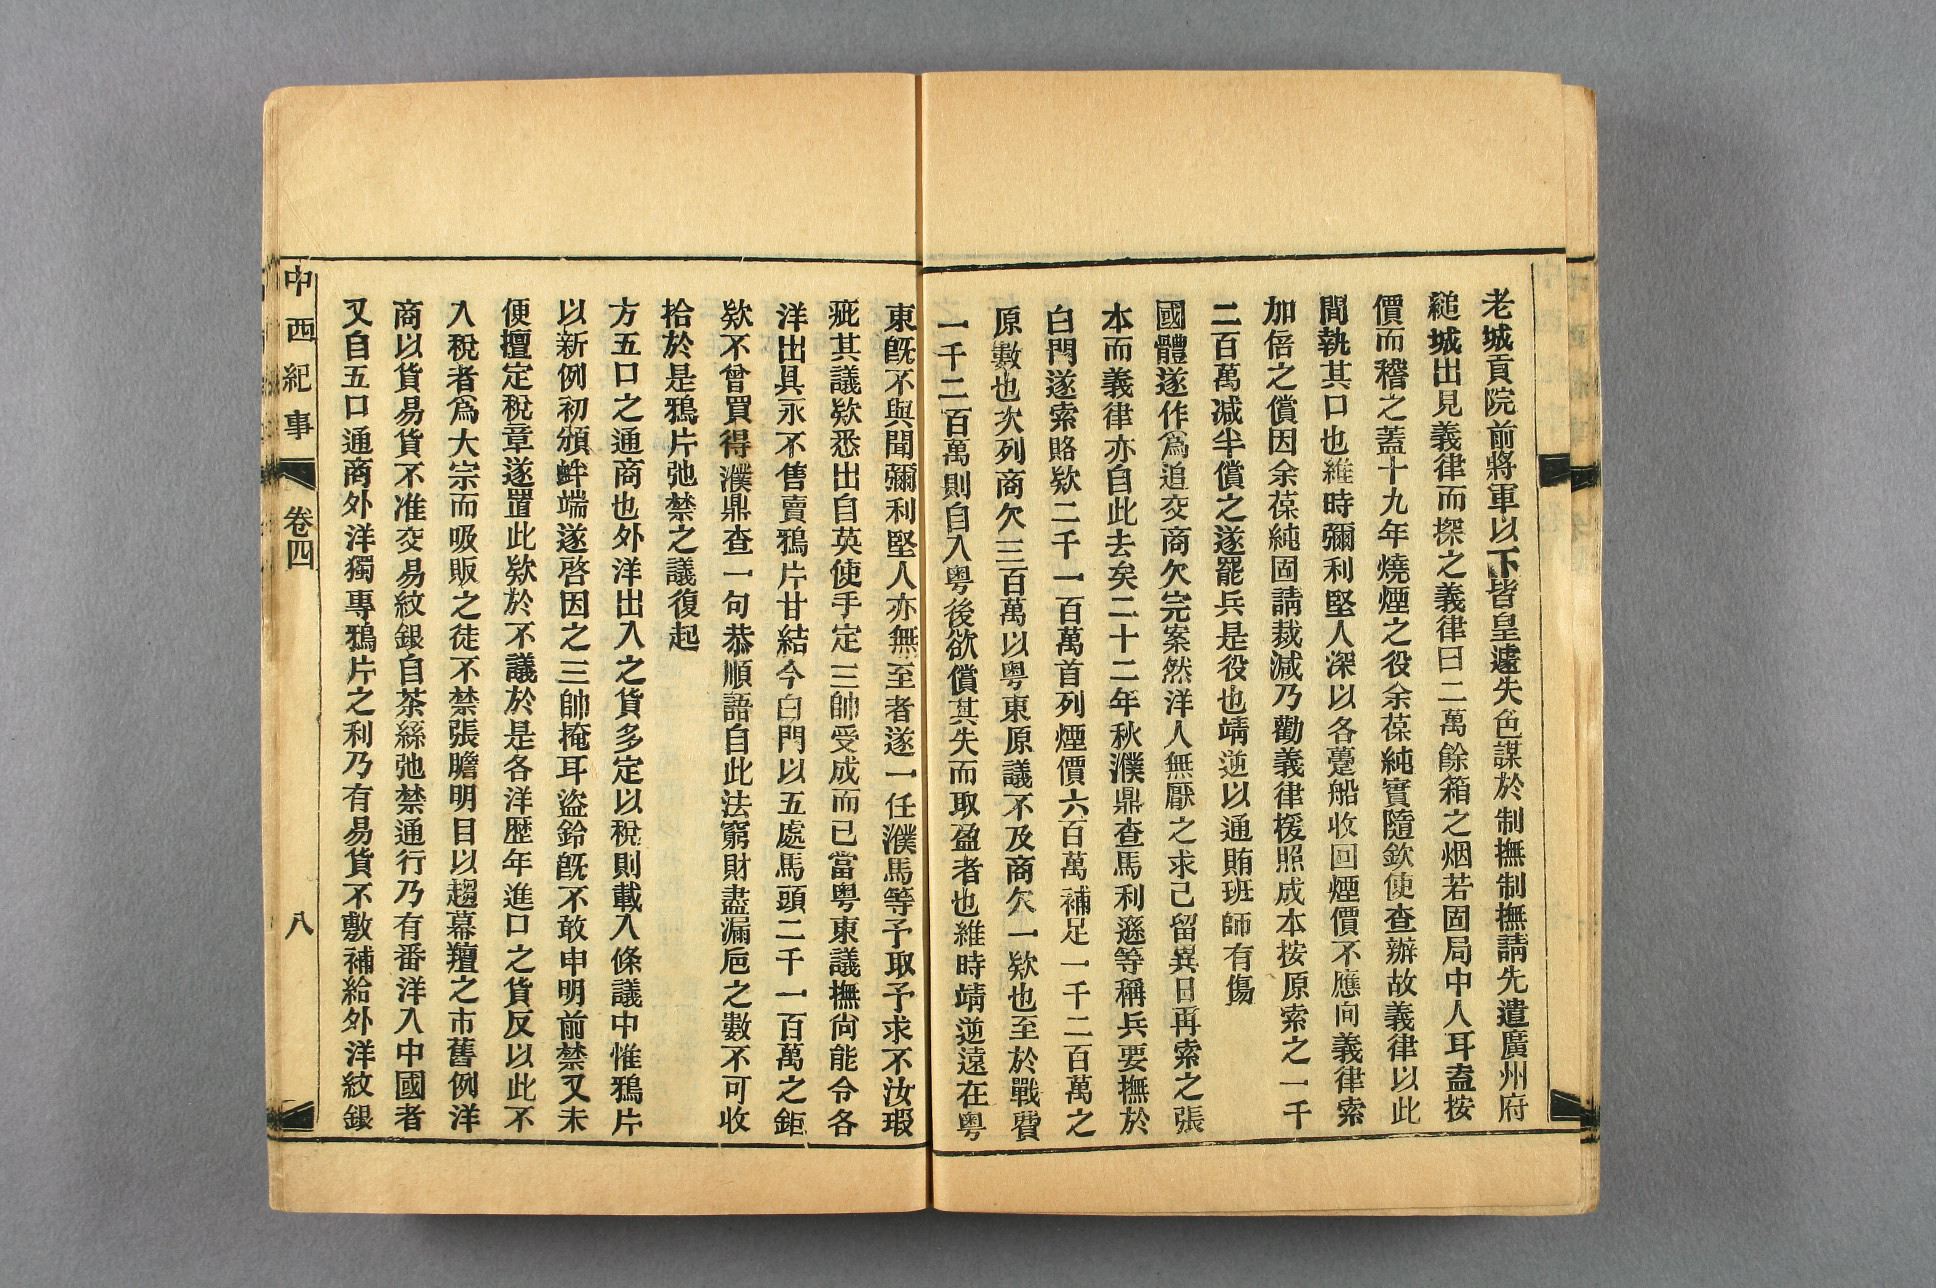 老城貢院前將軍以下皆皇遽失色謀於制撫制撫請先遣廣州府
縋城出見義律而探之義律曰二萬餘箱之烟若固局中人耳盍按
價而稽之蓋十九年燒煙之役余葆純實隨欽使查辦故義律以此
間執其口也維時彌利堅人深以各躉船收回煙價不應向義律索
加倍之償因余葆純固請裁減乃勸義律援照成本按原索之一千
二百萬減半償之遂罷兵是役也靖逆以通賄班師有傷
國體遂作爲追交商欠完案然洋人無厭之求已留異日再索之張
本而義律亦自此去矣二十二年秋濮鼎查馬利遜等稱兵要撫於
白門遂索賂欵二千一百萬首列煙價六百萬補足一千二百萬之
原數也次列商欠三百萬以粤東原議不及商欠一欵也至於戰費
一千二百萬則自入粤後欲償其失而取盈者也維時靖逆遠在粤
東旣不與聞彌利堅人亦無至者遂一任濮馬等予取予求不汝瑕
疵其議欵悉出自英使手定三帥受成而已當粤東議撫尙能令各
洋出具永不售賣鴉片甘結今白門以五處馬頭二千一百萬之鉅
欵不曾買得濮鼎查一句恭順語自此法窮財盡漏巵之數不可收
拾於是鴉片弛禁之議復起
方五口之通商也外洋出入之貨多定以稅則載入條議中惟鴉片
以新例初頒衅端遂啓因之三帥掩耳盜鈴旣不敢申明前禁又未
便擅定稅章遂置此欵於不議於是各洋歷年進口之貨反以此不
入稅者爲大宗而吸販之徒不禁張膽明目以趨幕羶之市舊例洋
商以貨易貨不准交易紋銀自茶絲弛禁通行乃有番洋入中國者
又自五口通商外洋獨專鴉片之利乃有易貨不敷補給外洋紋銀
中西紀事
卷四
八